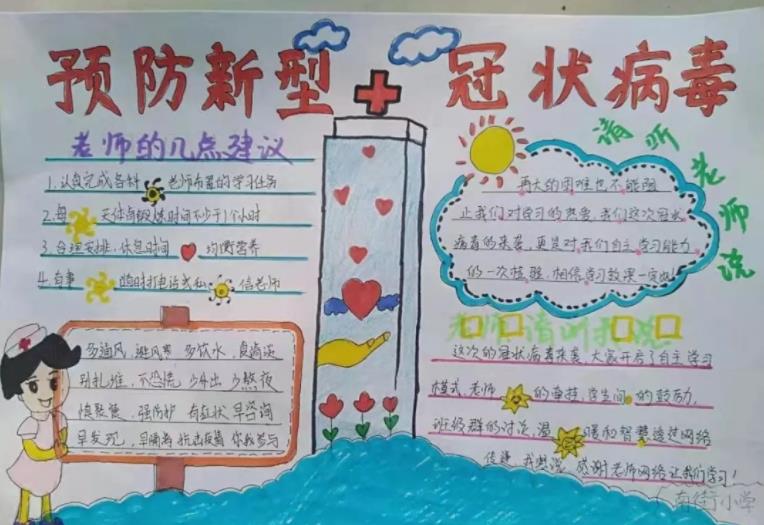 预防新型冠状病毒
老师的几点建议
1.认真完成各科老师布置的学习任务
2.每天体育锻炼时间不少于1个小时
3.合理安排,休息时间均衡营养
4.有事随时打电话或私信老师
多通风,避风寒 多饮水,食清淡
别扎堆,不恐慌 少外出 少熬夜
慎聚餐,强防护 有症状 早咨询
早发现,早隔离 抗击疫情 你我参与
请听老师说
再大的困难也不能阻
止我们对学习的热爱,我们这次冠状
病毒的来袭,更是对我们自主学习能力
的一次检验,相信学习效果一定
老师请听我说
这次的冠状病毒来袭,大家开启了自主学习
模式,老师的牵挂,学生间的鼓励,
班级群的讨论,温暖和智慧透过网络
传递,我想说,感谢老师网络让我们学习!
南街小学